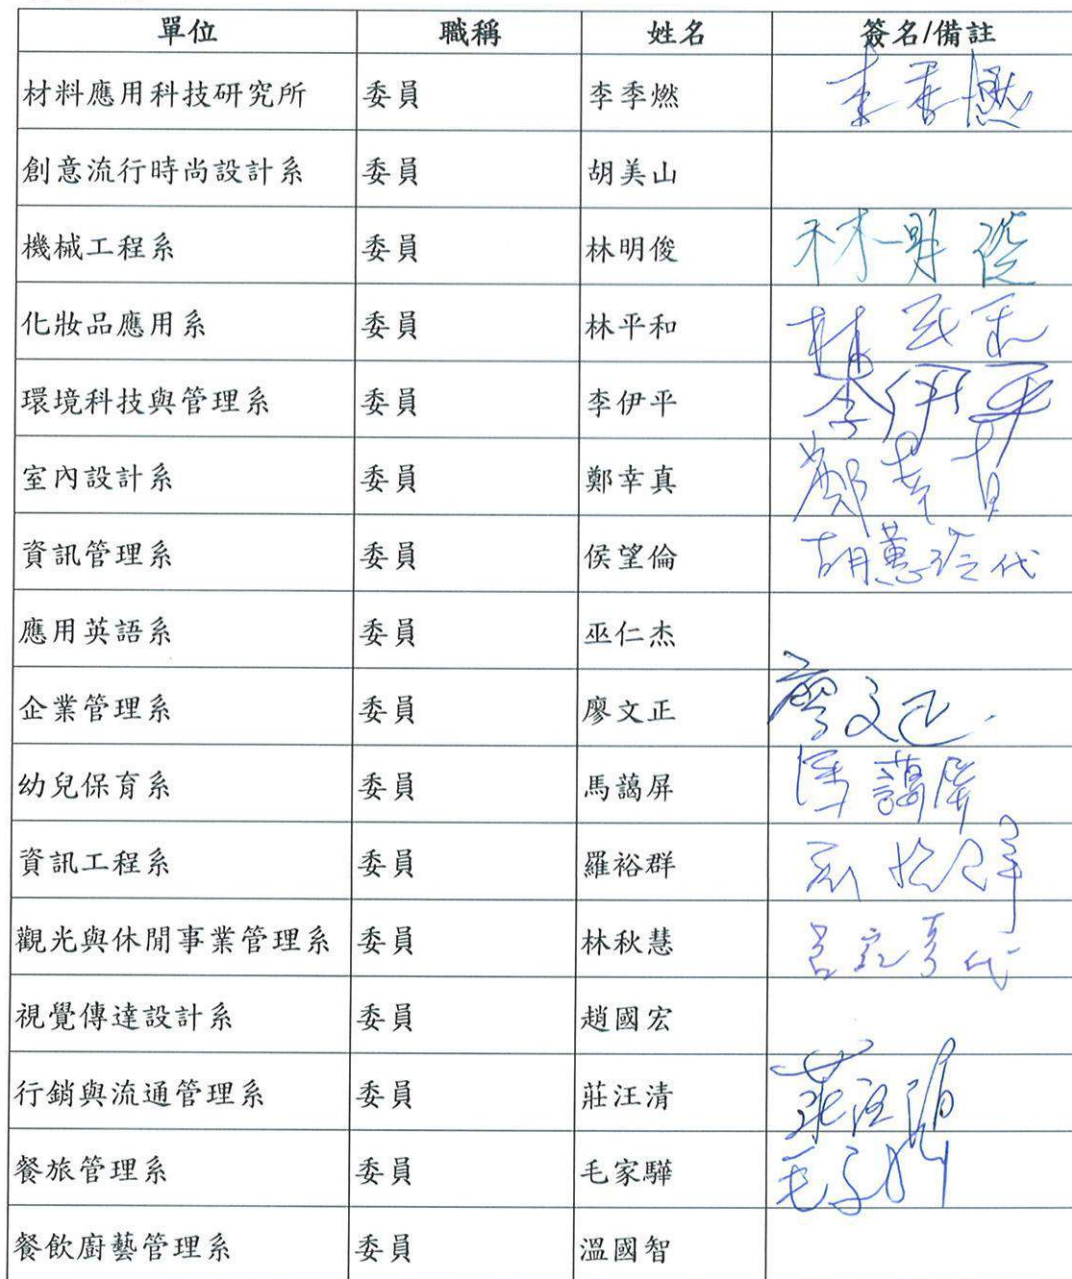 單位 職稱 姓名 簽名/備註
材料應用科技研究所 委員 李季燃 李季燃
創意流行時尚設計系 委員 胡美山
機械工程系 委員 林明俊 林明俊
化妝品應用系 委員 林平和 林平和
環境科技與管理系 委員 李伊平 李伊平
室內設計系 委員 鄭幸真 鄭幸真
資訊管理系 委員 侯望倫 胡蕙玲代
應用英語系 委員 巫仁杰
企業管理系 委員 廖文正 廖文正
幼兒保育系 委員 馬藹屏 馬藹屏
資訊工程系 委員 羅裕群
觀光與休閒事業管理系 委員 林秋慧 代
視覺傳達設計系 委員 趙國宏
行銷與流通管理系 委員 莊汪清 莊汪清
餐旅管理系 委員 毛家驊 毛
餐飲廚藝管理系 委員 溫國智